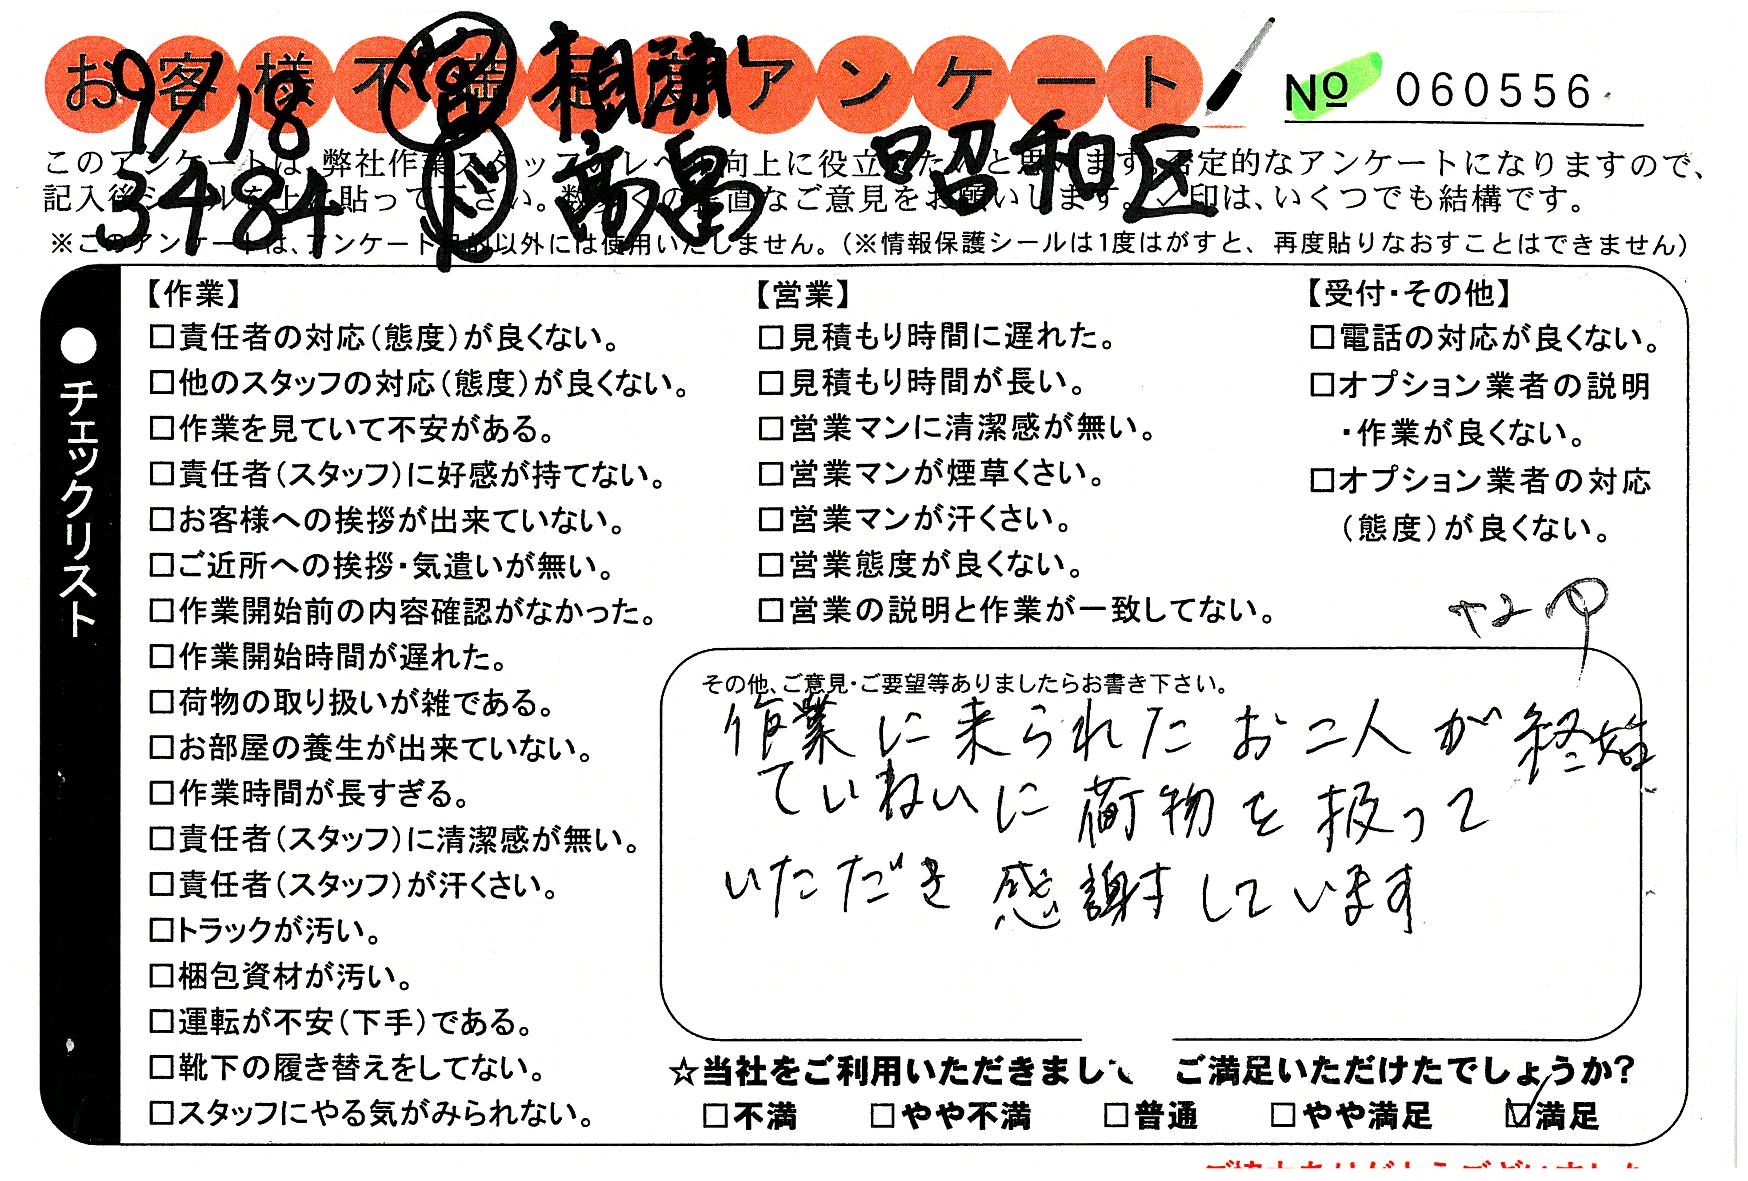 お客様不満足度アンケート
№ 060556
9/18 営 相浦
3484 下 高畠 昭和区
このアンケートは、弊社作業スタッフのレベル向上に役立てたいと思います。否定的なアンケートになりますので、
記入後シールを上に貼って下さい。数多くの正直なご意見をお願いします。✓印は、いくつでも結構です。
※このアンケートは、アンケート目的以外には使用いたしません。(※情報保護シールは1度はがすと、再度貼りなおすことはできません)
●チェックリスト
【作業】
□責任者の対応(態度)が良くない。
□他のスタッフの対応(態度)が良くない。
□作業を見ていて不安がある。
□責任者(スタッフ)に好感が持てない。
□お客様への挨拶が出来ていない。
□ご近所への挨拶・気遣いが無い。
□作業開始前の内容確認がなかった。
□作業開始時間が遅れた。
□荷物の取り扱いが雑である。
□お部屋の養生が出来ていない。
□作業時間が長すぎる。
□責任者(スタッフ)に清潔感が無い。
□責任者(スタッフ)が汗くさい。
□トラックが汚い。
□梱包資材が汚い。
□運転が不安(下手)である。
□靴下の履き替えをしてない。
□スタッフにやる気がみられない。
【営業】
□見積もり時間に遅れた。
□見積もり時間が長い。
□営業マンに清潔感が無い。
□営業マンが煙草くさい。
□営業マンが汗くさい。
□営業態度が良くない。
□営業の説明と作業が一致してない。
【受付・その他】
□電話の対応が良くない。
□オプション業者の説明
・作業が良くない。
□オプション業者の対応
(態度)が良くない。
その他、ご意見・ご要望等ありましたらお書き下さい。
作業に来られたお二人が終始
ていねいに荷物を扱って
いただき感謝しています
☆当社をご利用いただきまして ご満足いただけたでしょうか?
□不満 □やや不満 □普通 □やや満足 ☑満足